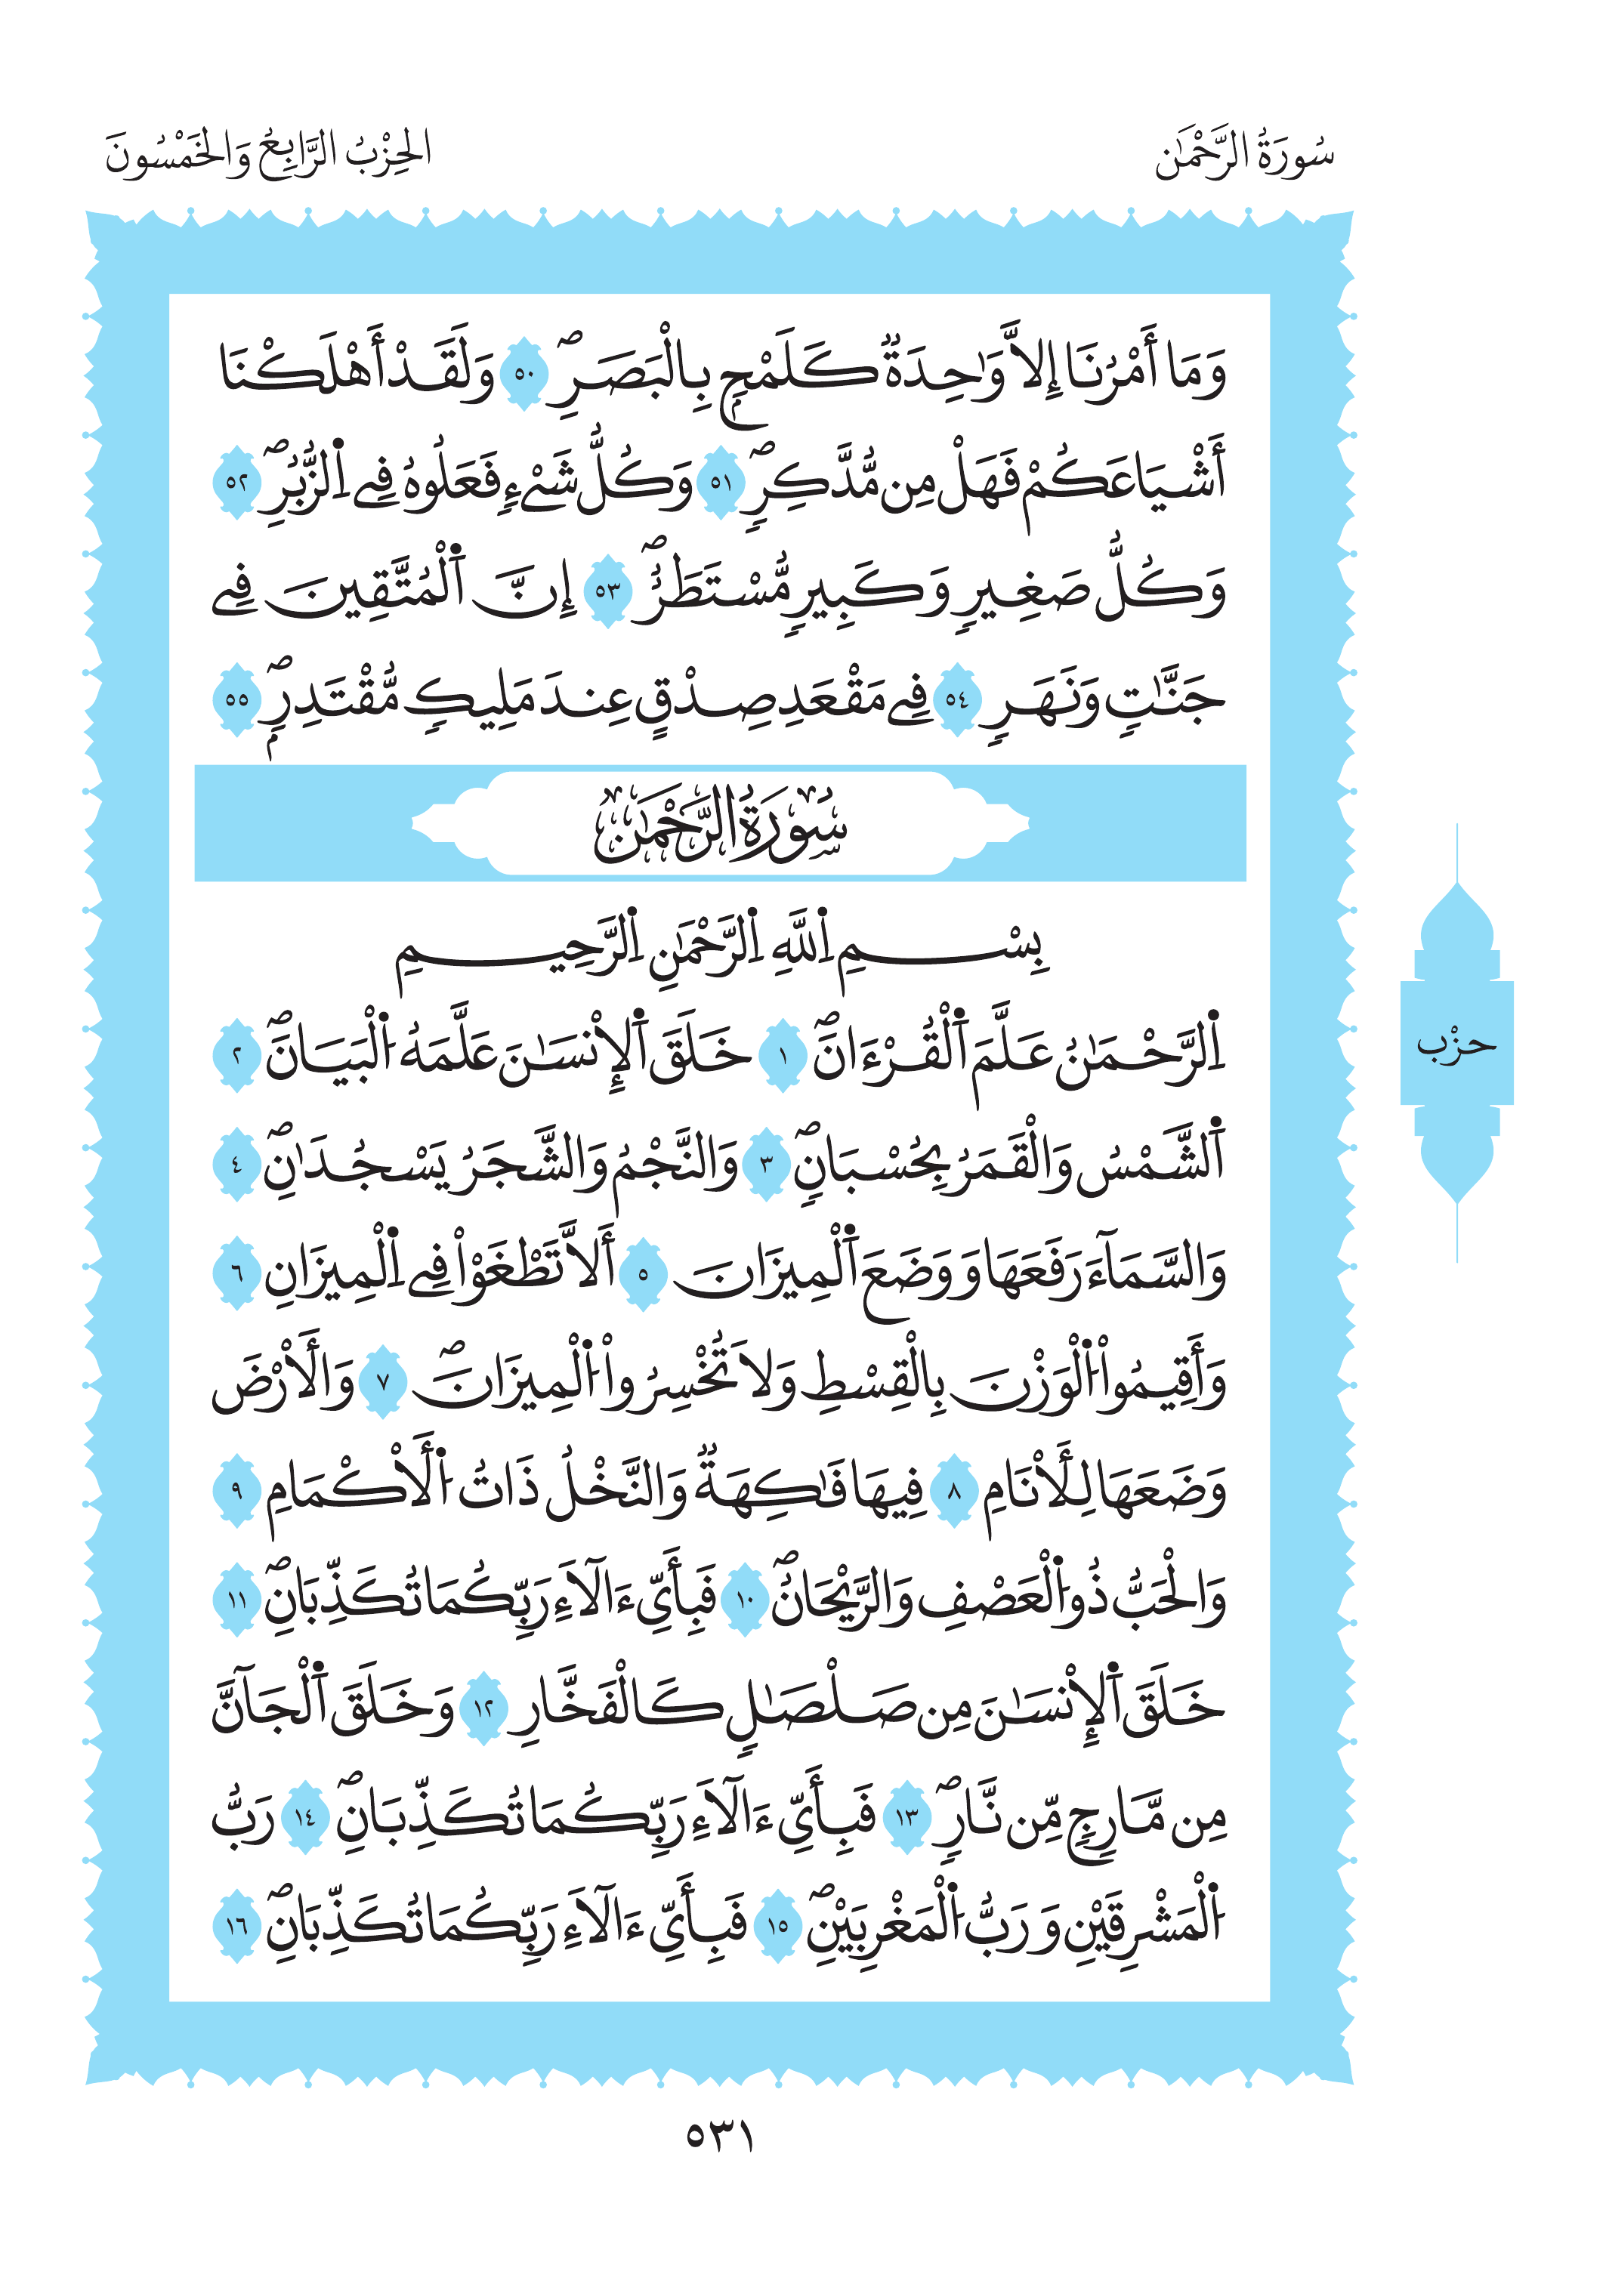 سُورَةُ الرَّحْمَٰن
الحِزْبُ الرَّابِعُ وَالخَمْسُونَ
وَمَا أَمْرُنَا إِلاَّ وَٰحِدَةٌ كَلَمْحِۢ بِالْبَصَرِۖ ٥٠ وَلَقَدْ أَهْلَكْنَا
أَشْيَاعَكُمْ فَهَلْ مِن مُّدَّكِرٖۖ ٥١ وَكُلُّ شَےْءٖ فَعَلُوهُ فِے اِ۬لزُّبُرِۖ ٥٢
وَكُلُّ صَغِيرٖ وَكَبِيرٖ مُّسْتَطَرٌۖ ٥٣ إِنَّ اَ۬لْمُتَّقِينَ فِے
جَنَّٰتٖ وَنَهَرٖ ٥٤ فِے مَقْعَدِ صِدْقٍ عِندَ مَلِيكٖ مُّقْتَدِرِۢۖ ٥٥
سُورَةُ الرَّحْمَٰن
بِسْمِ اِ۬للَّهِ اِ۬لرَّحْمَٰنِ اِ۬لرَّحِيمِ
اِ۬لرَّحْمَٰنُ عَلَّمَ اَ۬لْقُرْءَانَۖ ١ خَلَقَ اَ۬لْإِنْسَٰنَ عَلَّمَهُ اُ۬لْبَيَانَۖ ٢
اَ۬لشَّمْسُ وَالْقَمَرُ بِحُسْبَانٖۖ ٣ وَالنَّجْمُ وَالشَّجَرُ يَسْجُدَٰنِۖ ٤
وَالسَّمَآءَ رَفَعَهَا وَوَضَعَ اَ۬لْمِيزَانَ ٥ أَلاَّ تَطْغَوْاْ فِے اِ۬لْمِيزَانِ ٦
وَأَقِيمُواْ اُ۬لْوَزْنَ بِالْقِسْطِ وَلاَ تُخْسِرُواْ اُ۬لْمِيزَانَۖ ٧ وَالْأَرْضَ
وَضَعَهَا لِلْأَنَامِ ٨ فِيهَا فَٰكِهَةٌ وَالنَّخْلُ ذَاتُ اُ۬لْأَكْمَامِ ٩
وَالْحَبُّ ذُو اُ۬لْعَصْفِ وَالرَّيْحَانُۖ ١٠ فَبِأَيِّ ءَالَآءِ رَبِّكُمَا تُكَذِّبَانِۖ ١١
خَلَقَ اَ۬لْإِنْسَٰنَ مِن صَلْصَٰلٖ كَالْفَخَّارِ ١٢ وَخَلَقَ اَ۬لْجَآنَّ
مِن مَّارِجٖ مِّن نَّارٖۖ ١٣ فَبِأَيِّ ءَالَآءِ رَبِّكُمَا تُكَذِّبَانِۖ ١٤ رَبُّ
اُ۬لْمَشْرِقَيْنِ وَرَبُّ اُ۬لْمَغْرِبَيْنِۖ ١٥ فَبِأَيِّ ءَالَآءِ رَبِّكُمَا تُكَذِّبَانِۖ ١٦
حزْب
٥٣١